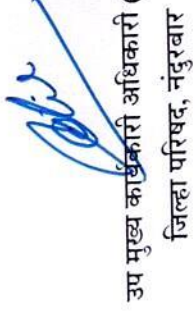 उप मुख्य कार्यकारी अधिकारी (
जिल्हा परिषद, नंदुरबार